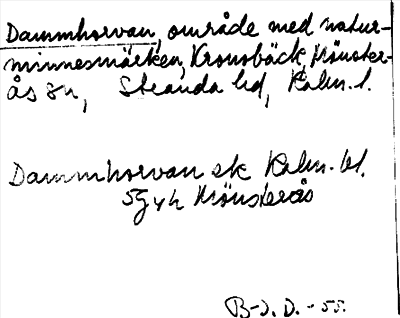 Dammhorvan, område med natur-
minnesmärken, Kronobäck, Mönster-
ås sn, Stranda hd, Kalm. l.
Dammhorvan ek Kalm. bl.
5G Mönsterås
B-J. D. -55.